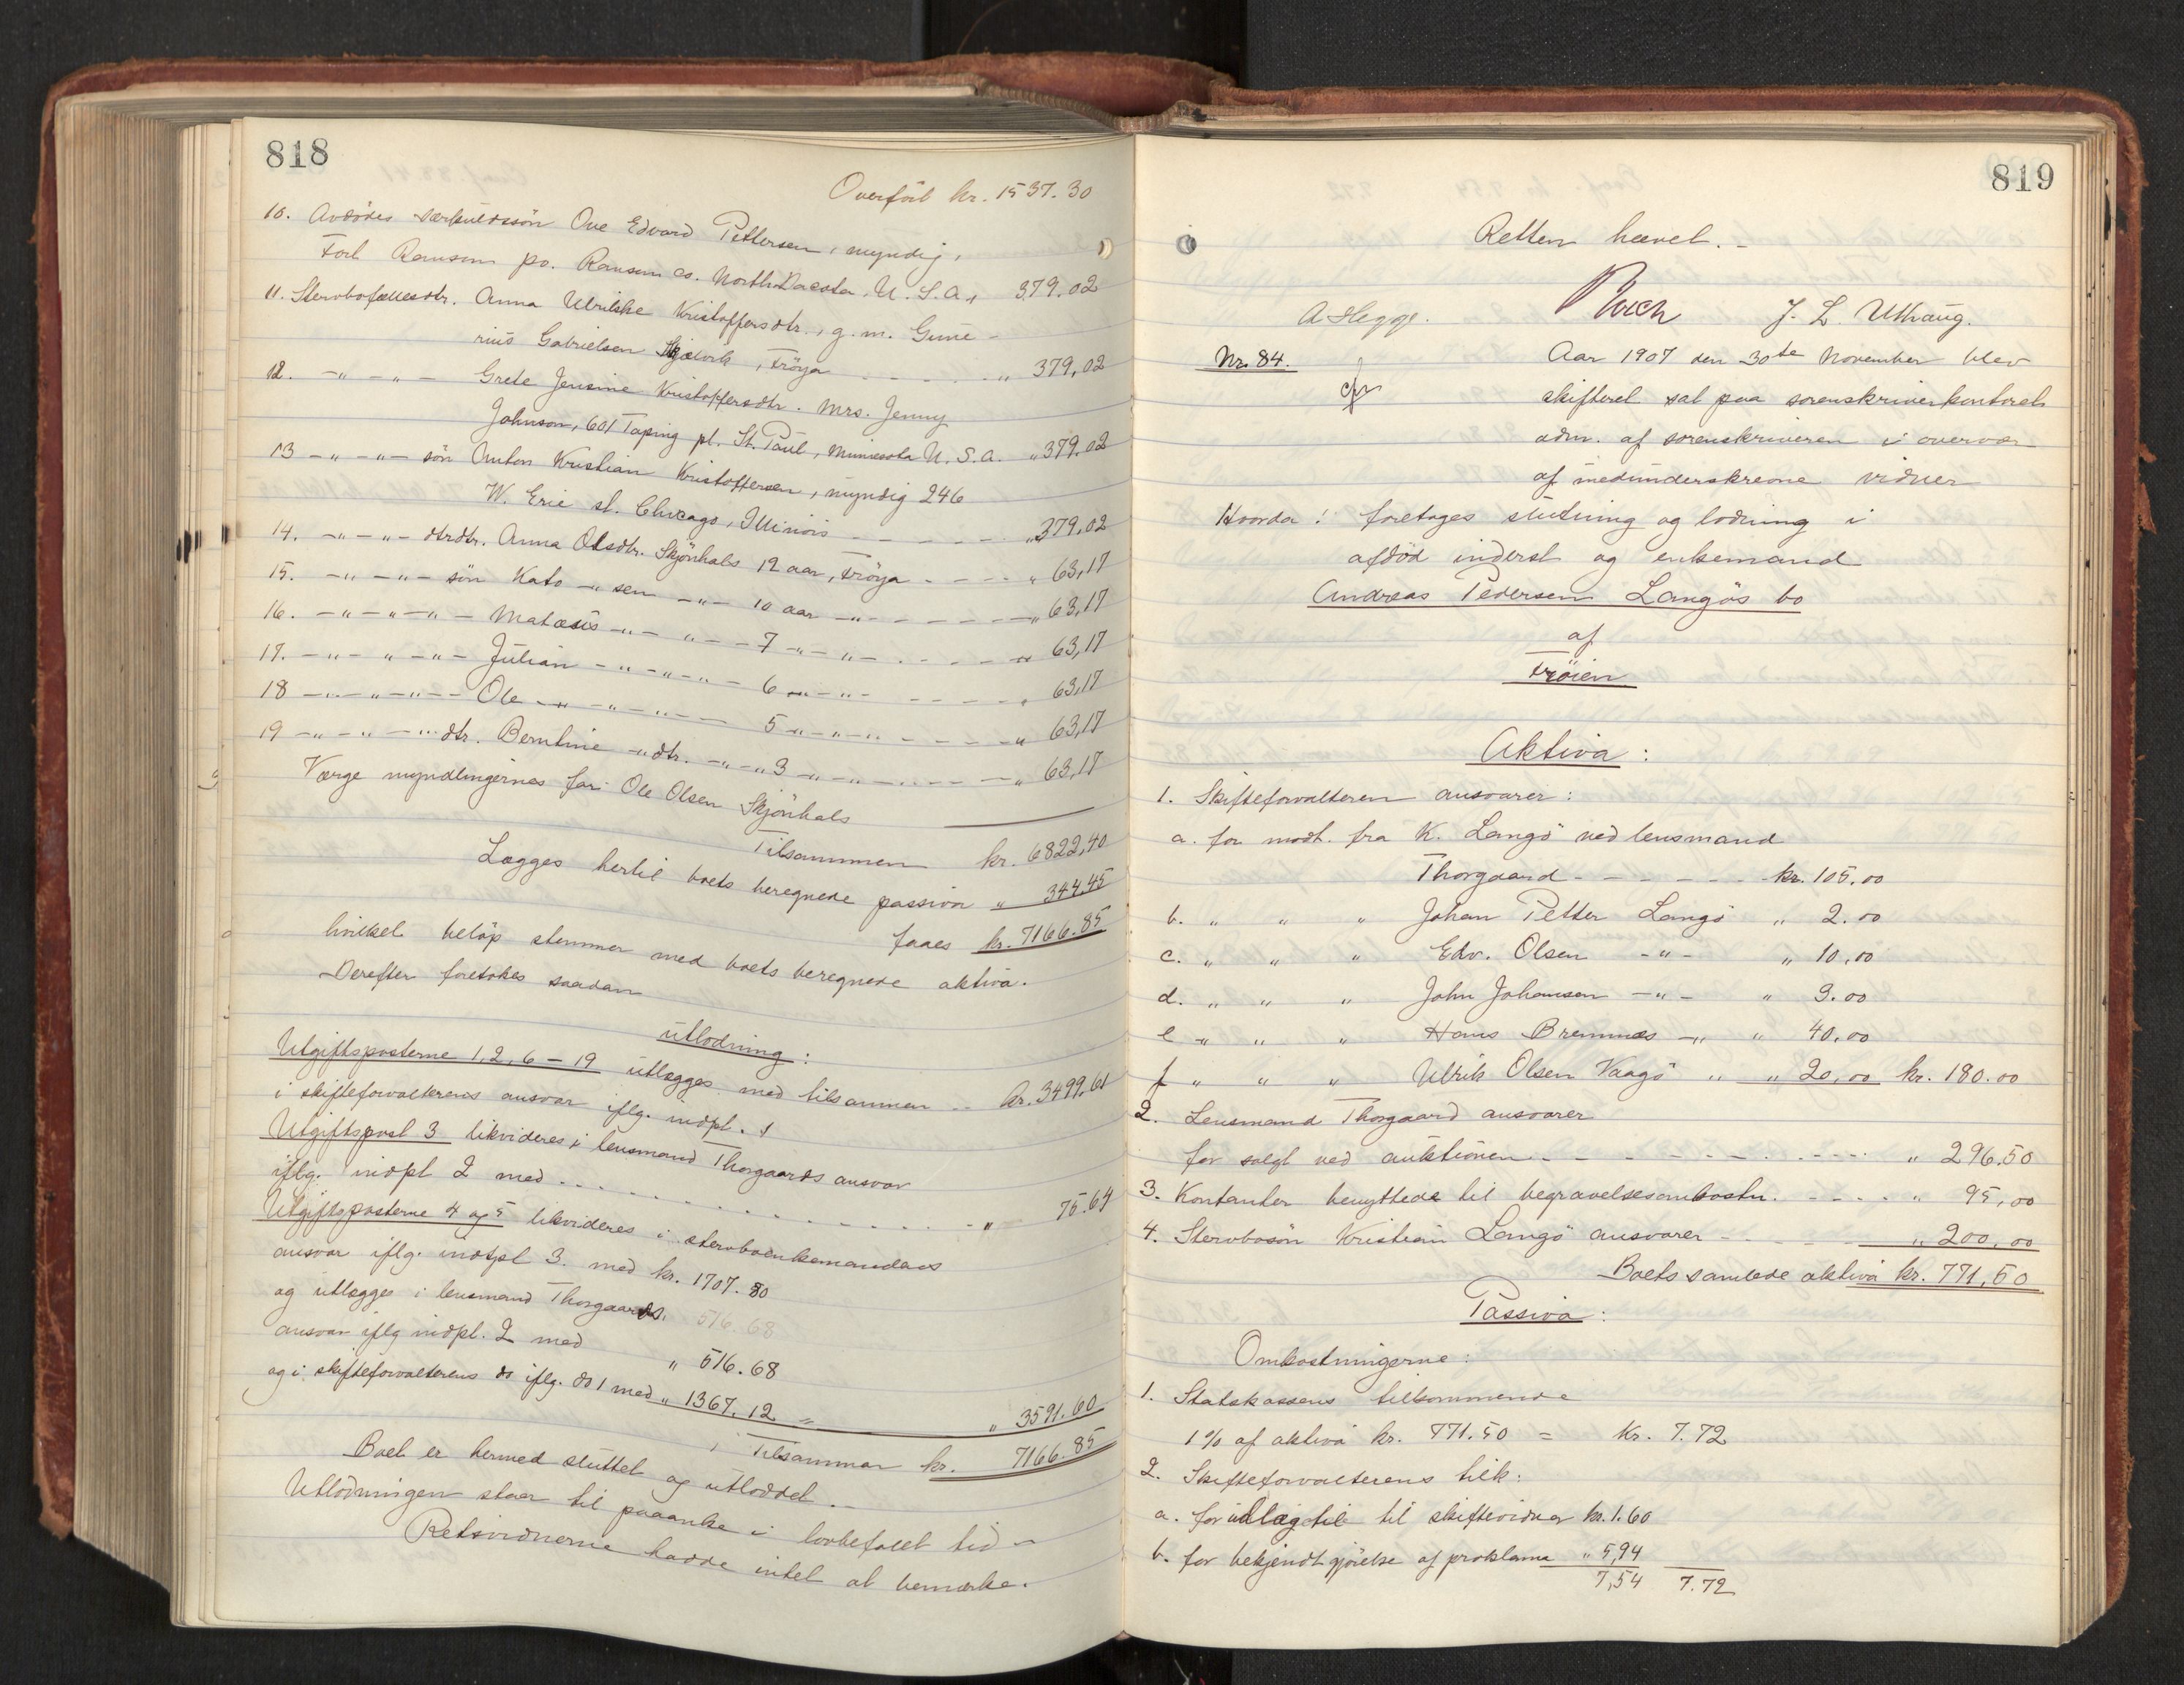 818
Overført kr. 1537.30
10. Avdødes særkuldssön Ove Edvard Pettersen, myndig,
Fort Ransom po. Ransom co. North Dacota, U. S. A., 379.02
11. Stervbofællesdtr. Anna Ulrikke Kristoffersdtr., g. m. Gune-
rius Gabrielsen Skjælvik, Fröya - - - - - " 379,02
12. - " - " - Grete Jensine Kristoffersdtr. Mrs. Jenny
Johnson, 601 Taping pl. St. Paul, Minnesota U. S. A. " 379.02
13 - " - " - sön Anton Kristian Kristoffersen, myndig 246
W. Erie st. Chicago, Illinois - - - - - - " 379,02
14. - " - " - dtrdtr. Anna Olsdtr. Skjönhals 12 aar, Fröya - - - - " 63,17
15. - " - " - sön Kato - " sen - " - 10 aar - " - - - - - - " 63,17
16. - " - " - " - Matæus - " - " - - 7 - " - " - . - - - " 63,17
17. - " - " - " - Julian - " - " - " - 6 - " - " - - - - - " 63,17
18 - " - " - " - - Ole - " - " - " - - 5 - " - " - " - - - - " 63,17
19 - " - " - " - dtr. Berntine - " dtr. - " - " 3 - " - " - . - - - " 63,17
Værge myndlingernes far Ole Olsen Skjönhals
Tilsammen kr. 6822,40
Lægges hertil boets beregnede passiva " 344.45
faaes kr. 7166.85
hvilket belöp stemmer med boets beregnede aktiva.
Derefter foretokes saadan
utlodning:
Utgiftsposterne 1, 2, 6 - 19 utlægges med tilsammen - - kr. 3499.61
i skifteforvalterens ansvar iflg. indpt. 1
Utgiftspost 3 likvideres i lensmand Thorgaards ansvar
iflg. indpt 2 med - - - - - - - - - - " 75.64
Utgiftsposterne 4 og 5 likvideres i stervboenkemandens
ansvar iflg. indpt 3. med kr. 1707.80
og utlægges i lensmand Thorgaards. 516.68
ansvar iflg indpt. 2 med " 516.68
og i skifteforvalterens do iflg. do 1 med " 1367.12 = " 3591.60
Tilsammen kr. 7166.85
Boet er hermed sluttet og utloddet. -
Utlodningen staar til paaanke i lovbefalet tid -
Retsvidnerne hadde intet at bemærke.
819
Retten hævet. -
A Hegge. J. L. Uthaug.
Nr. 84. Aar 1907 den 30te November blev
cfr skifteret sat paa sorenskriverkontoret
adm. af sorenskriveren i overvær
af medunderskrevne vidner
Hvorda! foretoges slutning og lodning i
afdöd inderst og enkemand
Andreas Pedersen Langös bo
af
Fröien
Aktiva:
1. Skifteforvalteren ansvarer:
a. for modt. fra K. Langö ved lensmand
Thorgaard - - - - - - - kr. 105,00
b. " " " Johan Petter Langö " 2.00
c. " " " Edv. Olsen - " - " 10,00
d. " " " John Johansen - " - " 3.00
e " " " Hans Bremnæs - " " 40,00
f " " " Ulrik Olsen Vaagö " " 20,00 kr. 180.00
2. Lensmand Thorgaard ansvarer
for solgt ved auktionen - - - - - - - - - " 296.50
3. Kontanter benyttede til begravelsesomkostn. - - - - " 95,00
4. Stervbosön Kristian Langö ansvarer - - - - " 200,00
Boets samlede aktiva kr. 771,50
Passiva:
Omkostningerne:
1. Statskassens tilkommende
1% af aktiva kr. 771.50 = Kr. 7.72
2. Skifteforvalterens tilk:
a. for utlæg til til skiftevidner kr. 1.60
b. for bekjendtgjörelse af proklama " 5,94
7,54 7.72